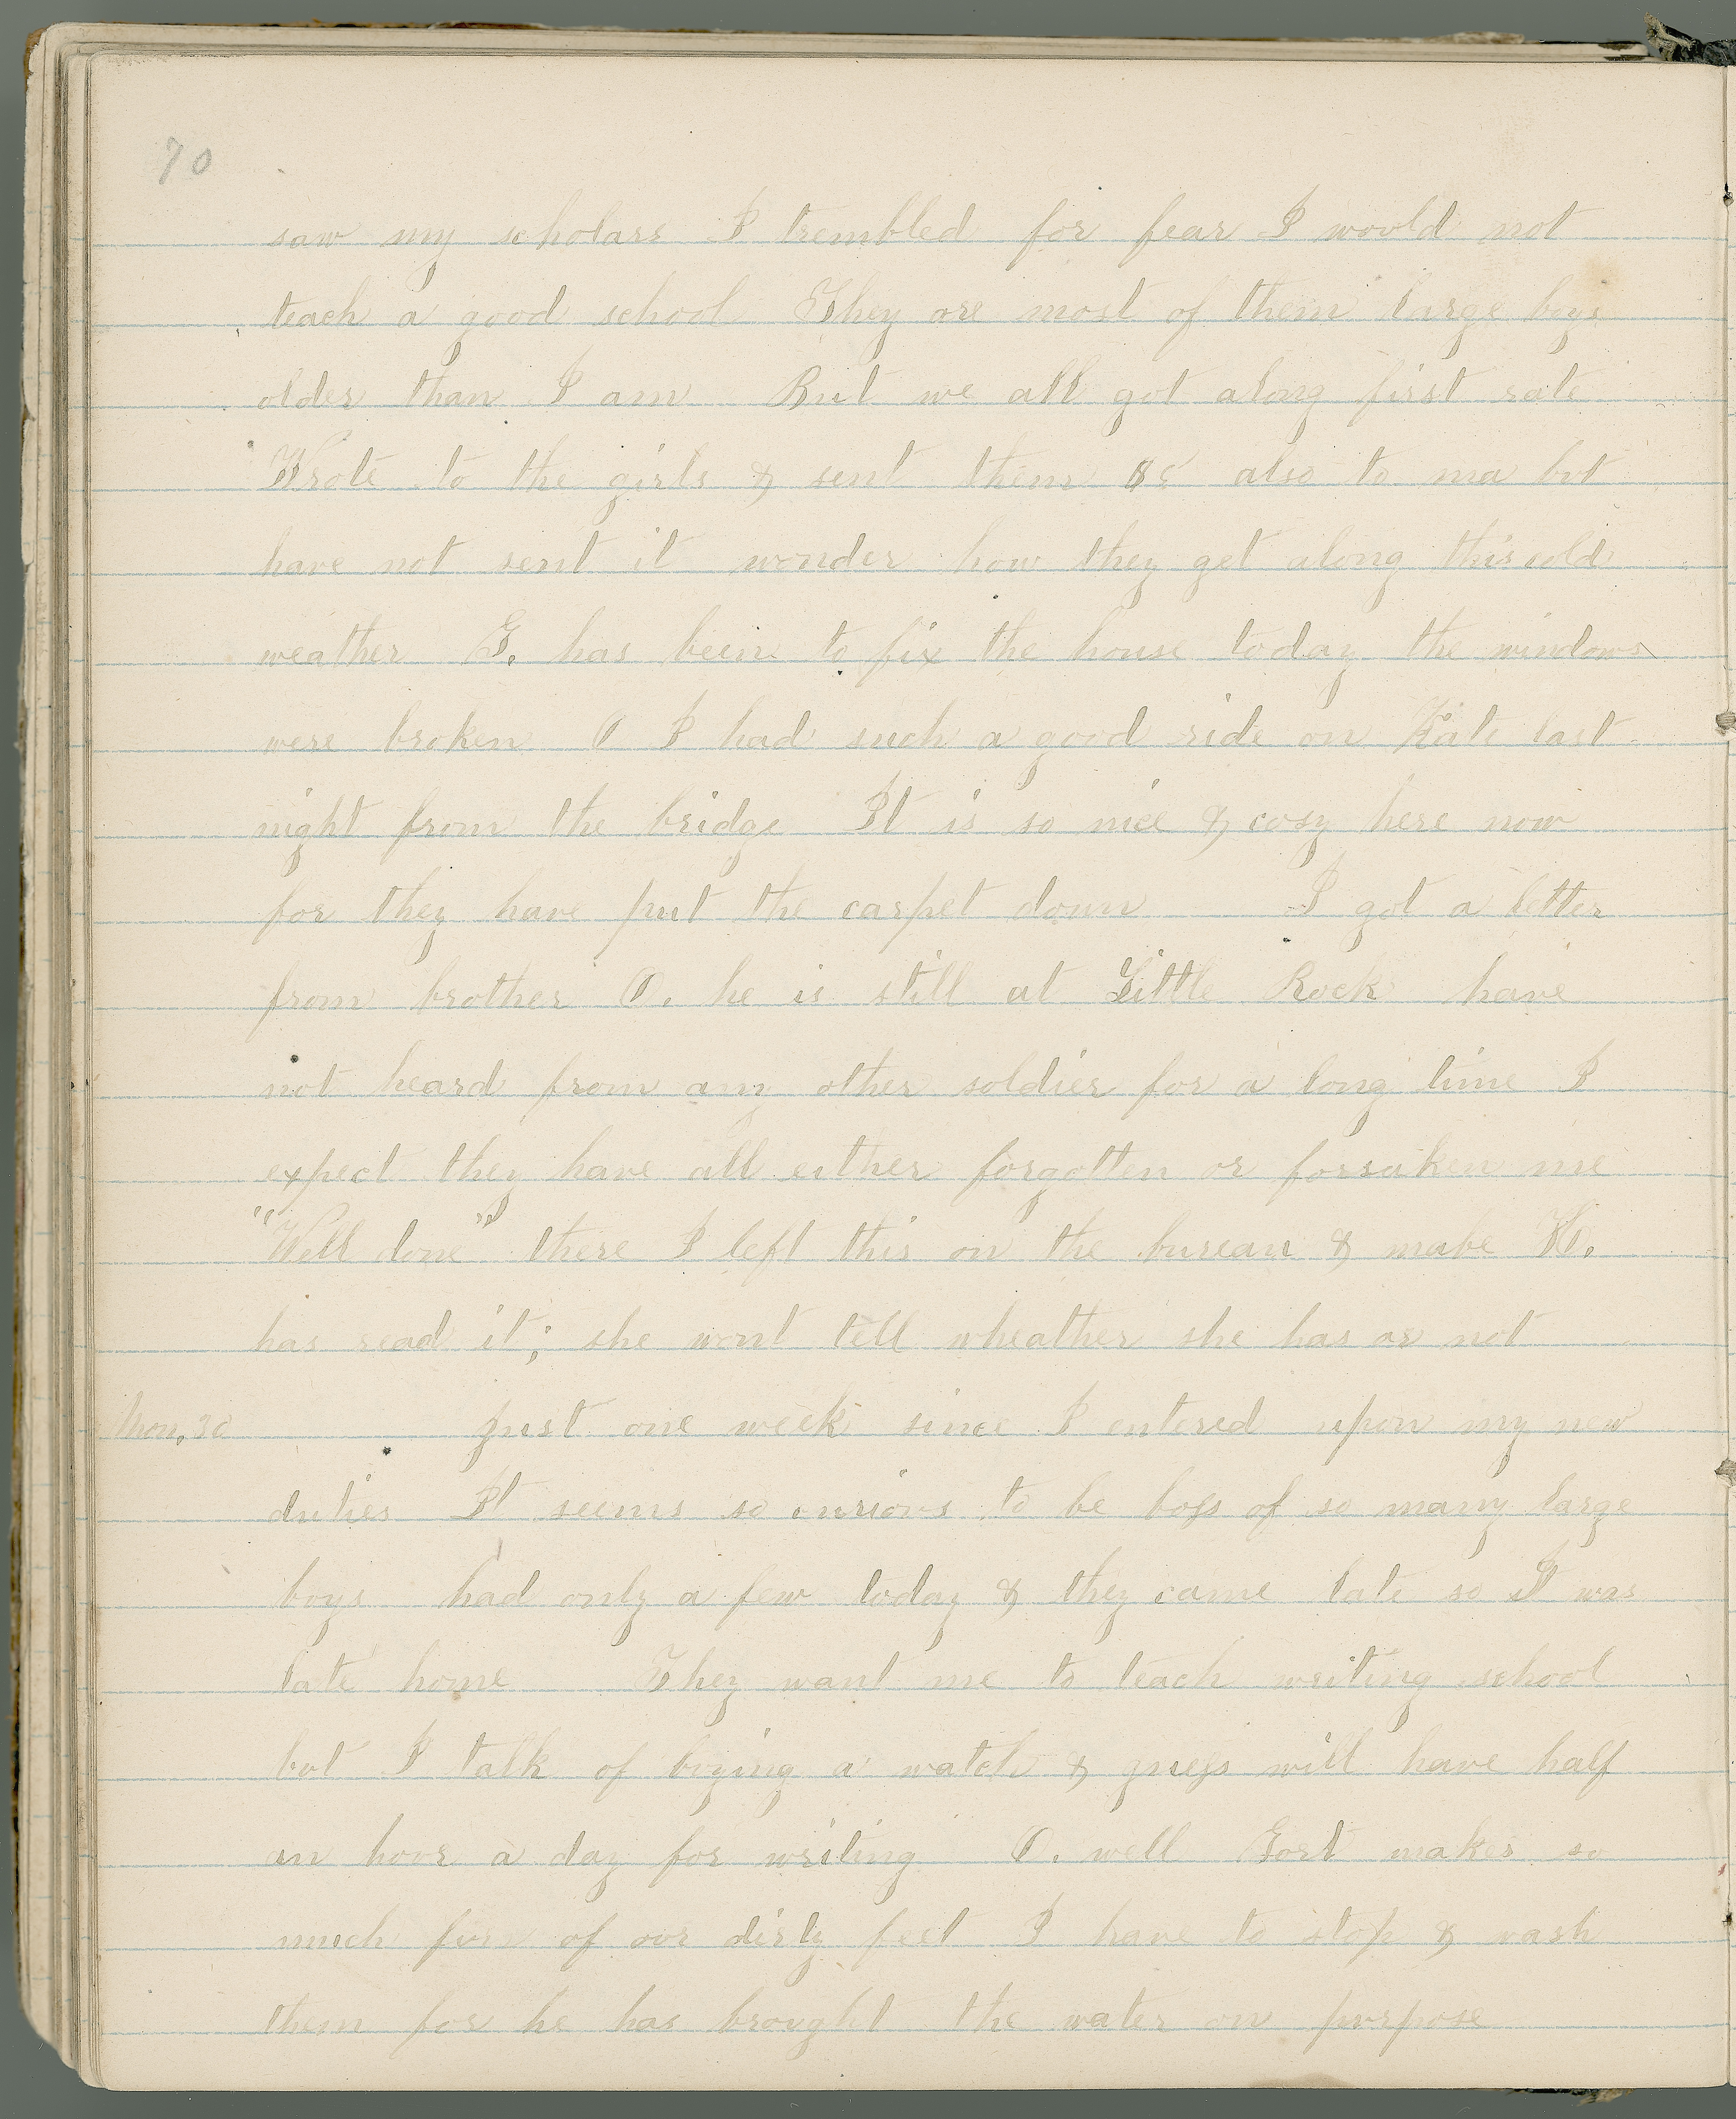 70
saw my scholars I trembled for fear I would not
teach a good school They are most of them large boys
older than I am But we all got along first rate
Wrote to the girls & sent them also to ma but
have not sent it wonder how they get along this cold
weather G. has been to fix the house today the windows
were broken O I had such a good ride on Kate last
night from the bridge It is so nice & cosy here now
for they have put the carpet down I got a letter
from brother O. he is still at Little Rock have
not heard from any other soldier for a long time I
expect they have all either forgotten or forsaken me
"Well done" there I left this on the bureau & mabe
has read it; she wont tell wheather she has or not
Mon. 30 Just one week since I entered upon my new
duties It seems so curious to be boss of so many large
boys had only a few today & they came late so I was
late home They want me to teach writing school
but I talk of buying a watch & guess will have half
an hour a day for writing O. well Gort makes so
much fun of our dirty feet I have to stop & wash
them for he has brought the water on purpose